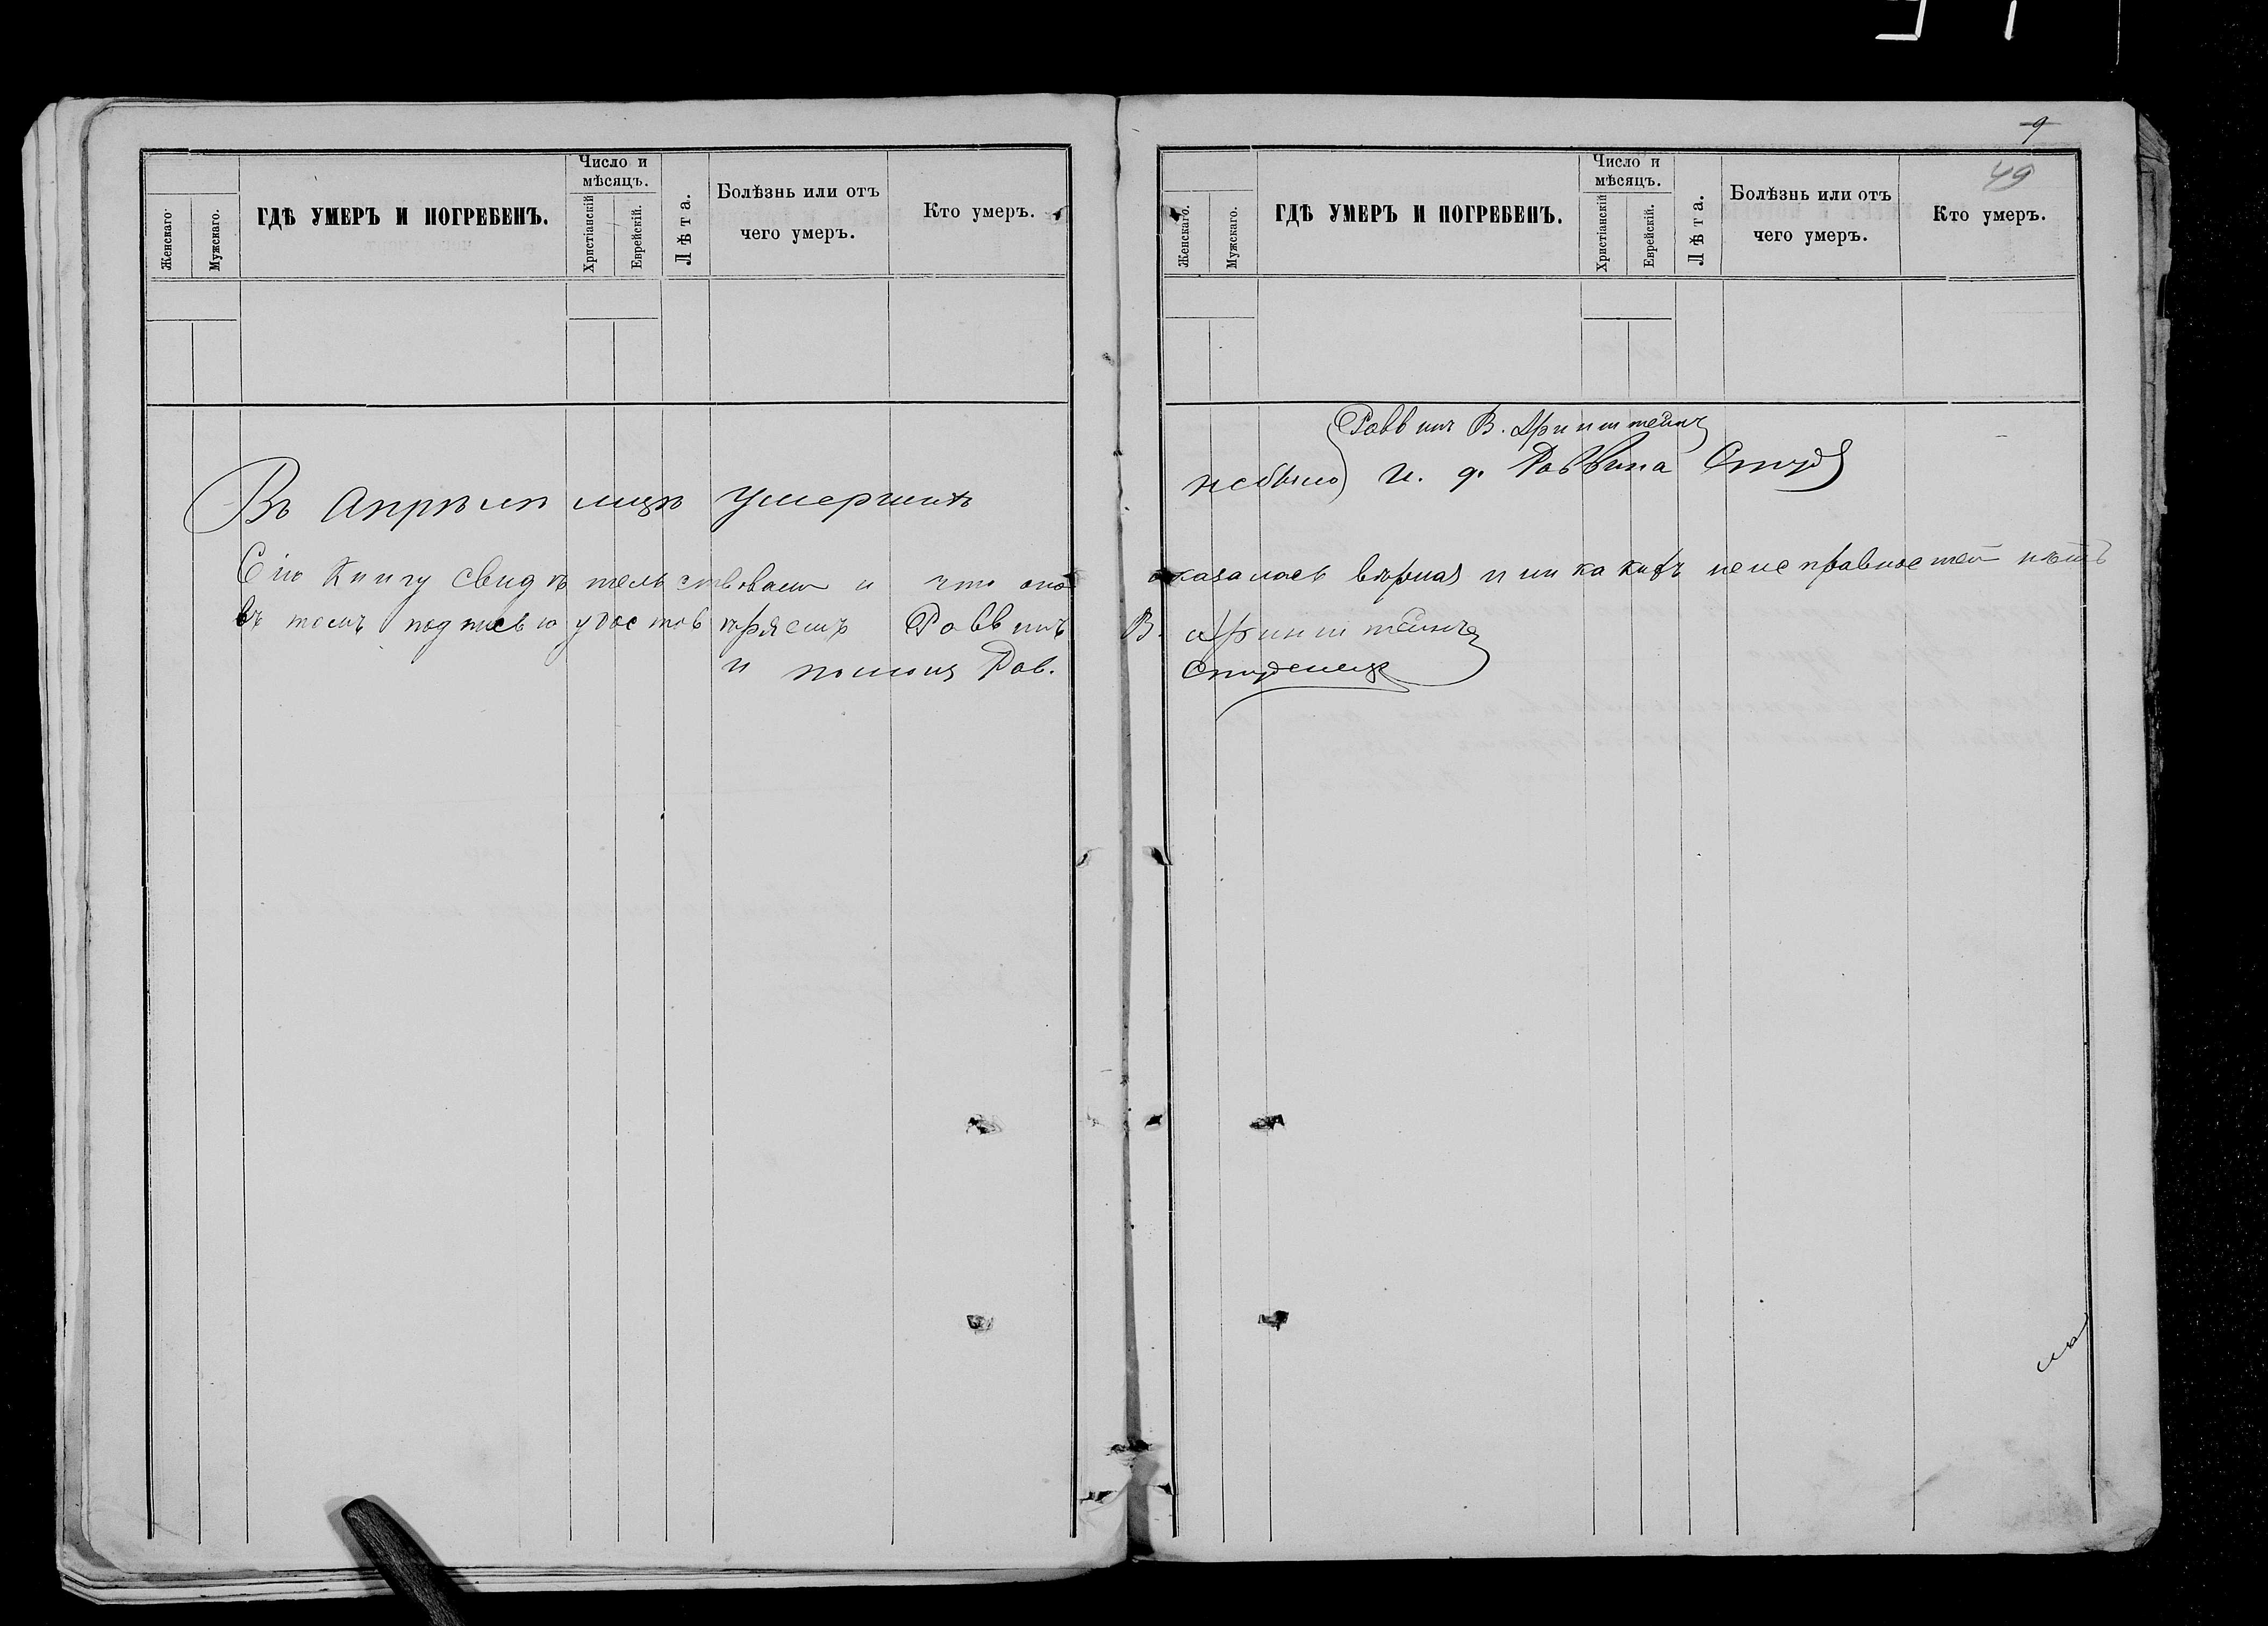 9
49
Число и мѣсяцъ.
Женскаго.
Мужскаго.
ГДѢ УМЕРЪ И ПОГРЕБЕНЪ.
Христіанскій
Еврейскій.
Лѣта.
Болѣзнь или отъ чего умеръ.
Кто умеръ.
Въ Апрѣлѣ мцѣ умершихъ
Сію Книгу свидѣтельствовали и что она
въ томъ подписью удостовѣряемъ Раввинъ
и помощ Рав.
Число и мѣсяцъ.
Женскаго.
Мужскаго.
ГДѢ УМЕРЪ И ПОГРЕБЕНЪ.
Христіанскій
Еврейскій.
Лѣта.
Болѣзнь или отъ чего умеръ.
Кто умеръ.
Раввинъ В.
небыло И. д. Раввина
оказалась вѣрная и никакихъ неисправностей нѣтъ
В.